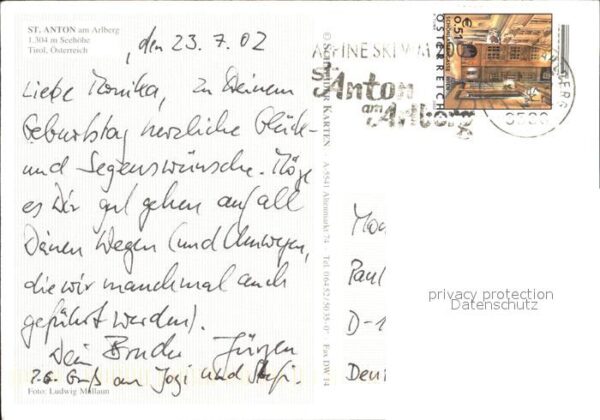 ST. ANTON am Arlberg
1.304 m Seehöhe
Tirol, Österreich
, den 23.7.02
Liebe Monika, zu Deinem
Geburtstag herzliche Glück-
und Segenswünsche. Möge
es Dir gut gehen auf all
Deinen Wegen (und Umwegen,
die wir manchmal auch
geführt werden).
Dein Bruder Jürgen
P.S. Gruß an Jogi und
Foto: Ludwig Mallaun
KARTEN A-5541 Altenmarkt 74 Tel. 06452/5035-0 Fax DW 14
ALPINE SKI WM 2001
St. Anton
am Arlberg
€ 0,51
ÖSTERREICH
Paul
D-1
privacy protection
Datenschutz